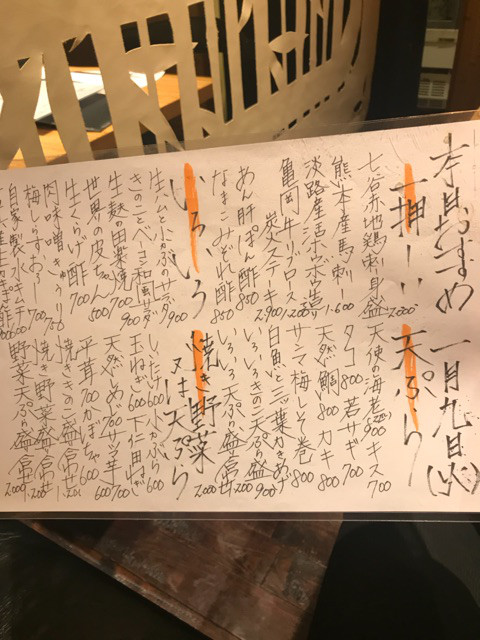 本日おすすめ 一月九日(火)
一押し!!
七谷赤地鶏刺身盛 2,000
熊本産馬刺し 1,600
淡路産活ホウボウ造り
亀岡牛リブロース
炭火ステーキ 2,900
あん肝ぽん酢 850
なまこみぞれ酢 850
いろいろ
生ハムと小かぶのサラダ 900
きのことベーコン和風サラダ 900
生麩の田楽焼 700
世界の皮ちゃん 500
生くらげ酢 700
肉味噌きゅうり 750
梅しらすおろし 700
自家製水キムチ 600
天ぷら
天使の海老 900 キス 700
タコ 800 若サギ 700
天然鯛 800 カキ 800
サンマ梅しそ巻 800
白魚と三ッ葉かきあげ 900
いろいろきのこ天ぷら盛 1,200
いろいろ天ぷら盛合せ 2,000
焼き野菜又は天ぷら
しいたけ 600 小かぶら 600
玉ねぎ 600 下仁田ねぎ
天然しめじ 700 サツマ芋 600
平茸 700 かぼちゃ 600
焼ききのこ盛合せ 1,201
焼き野菜盛合せ
野菜天ぷら盛合せ 2,000